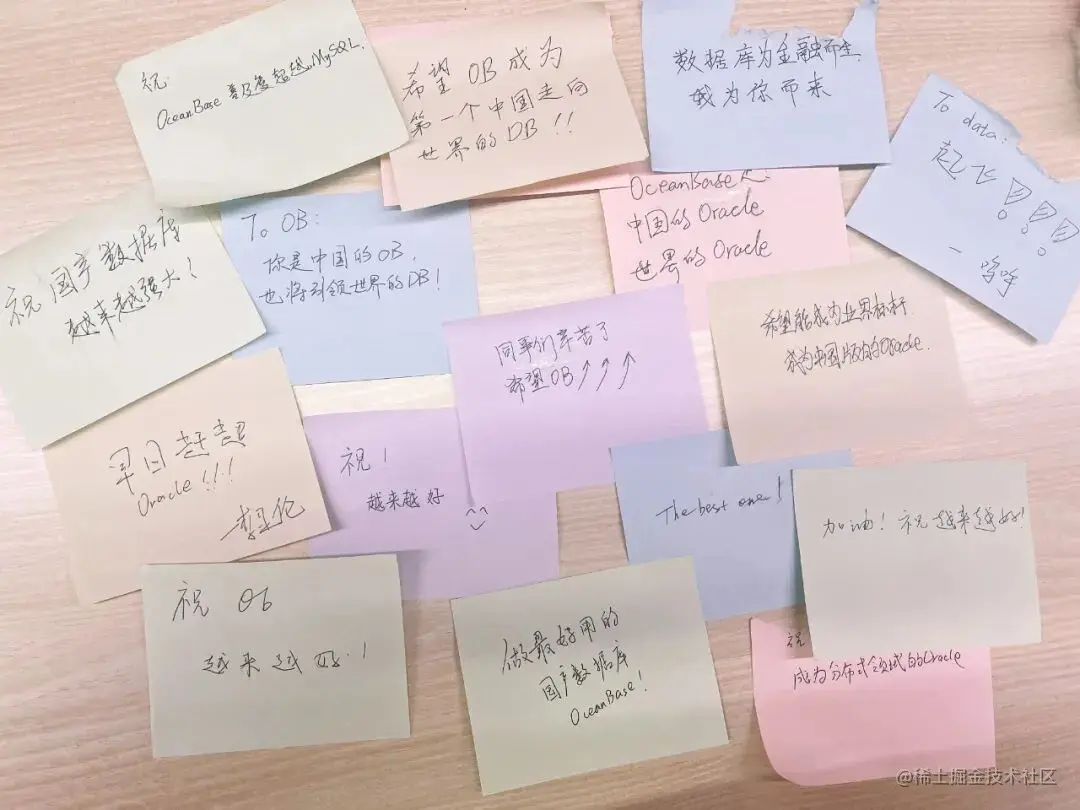 祝:
OceanBase 超越MySQL.
希望 OB 成为
第一个中国走向
世界的 DB !!
数据库为金融而生
我为你而来
To data:
起飞
祝国产数据库
越来越强大!
To OB:
你是中国的OB,
也将引领世界的DB!
OceanBase是:
中国的 Oracle
世界的 Oracle
同事们辛苦了
希望OB↑↑↑
希望能成为业界标杆
成为中国版的Oracle.
早日赶超
Oracle !!!
祝!
越来越好
The best one!
加油! 祝越来越好!
祝 Ob
越来越好!
做最好用的
国产数据库
OceanBase!
祝
成为分布式领域的Oracle
@稀土掘金技术社区